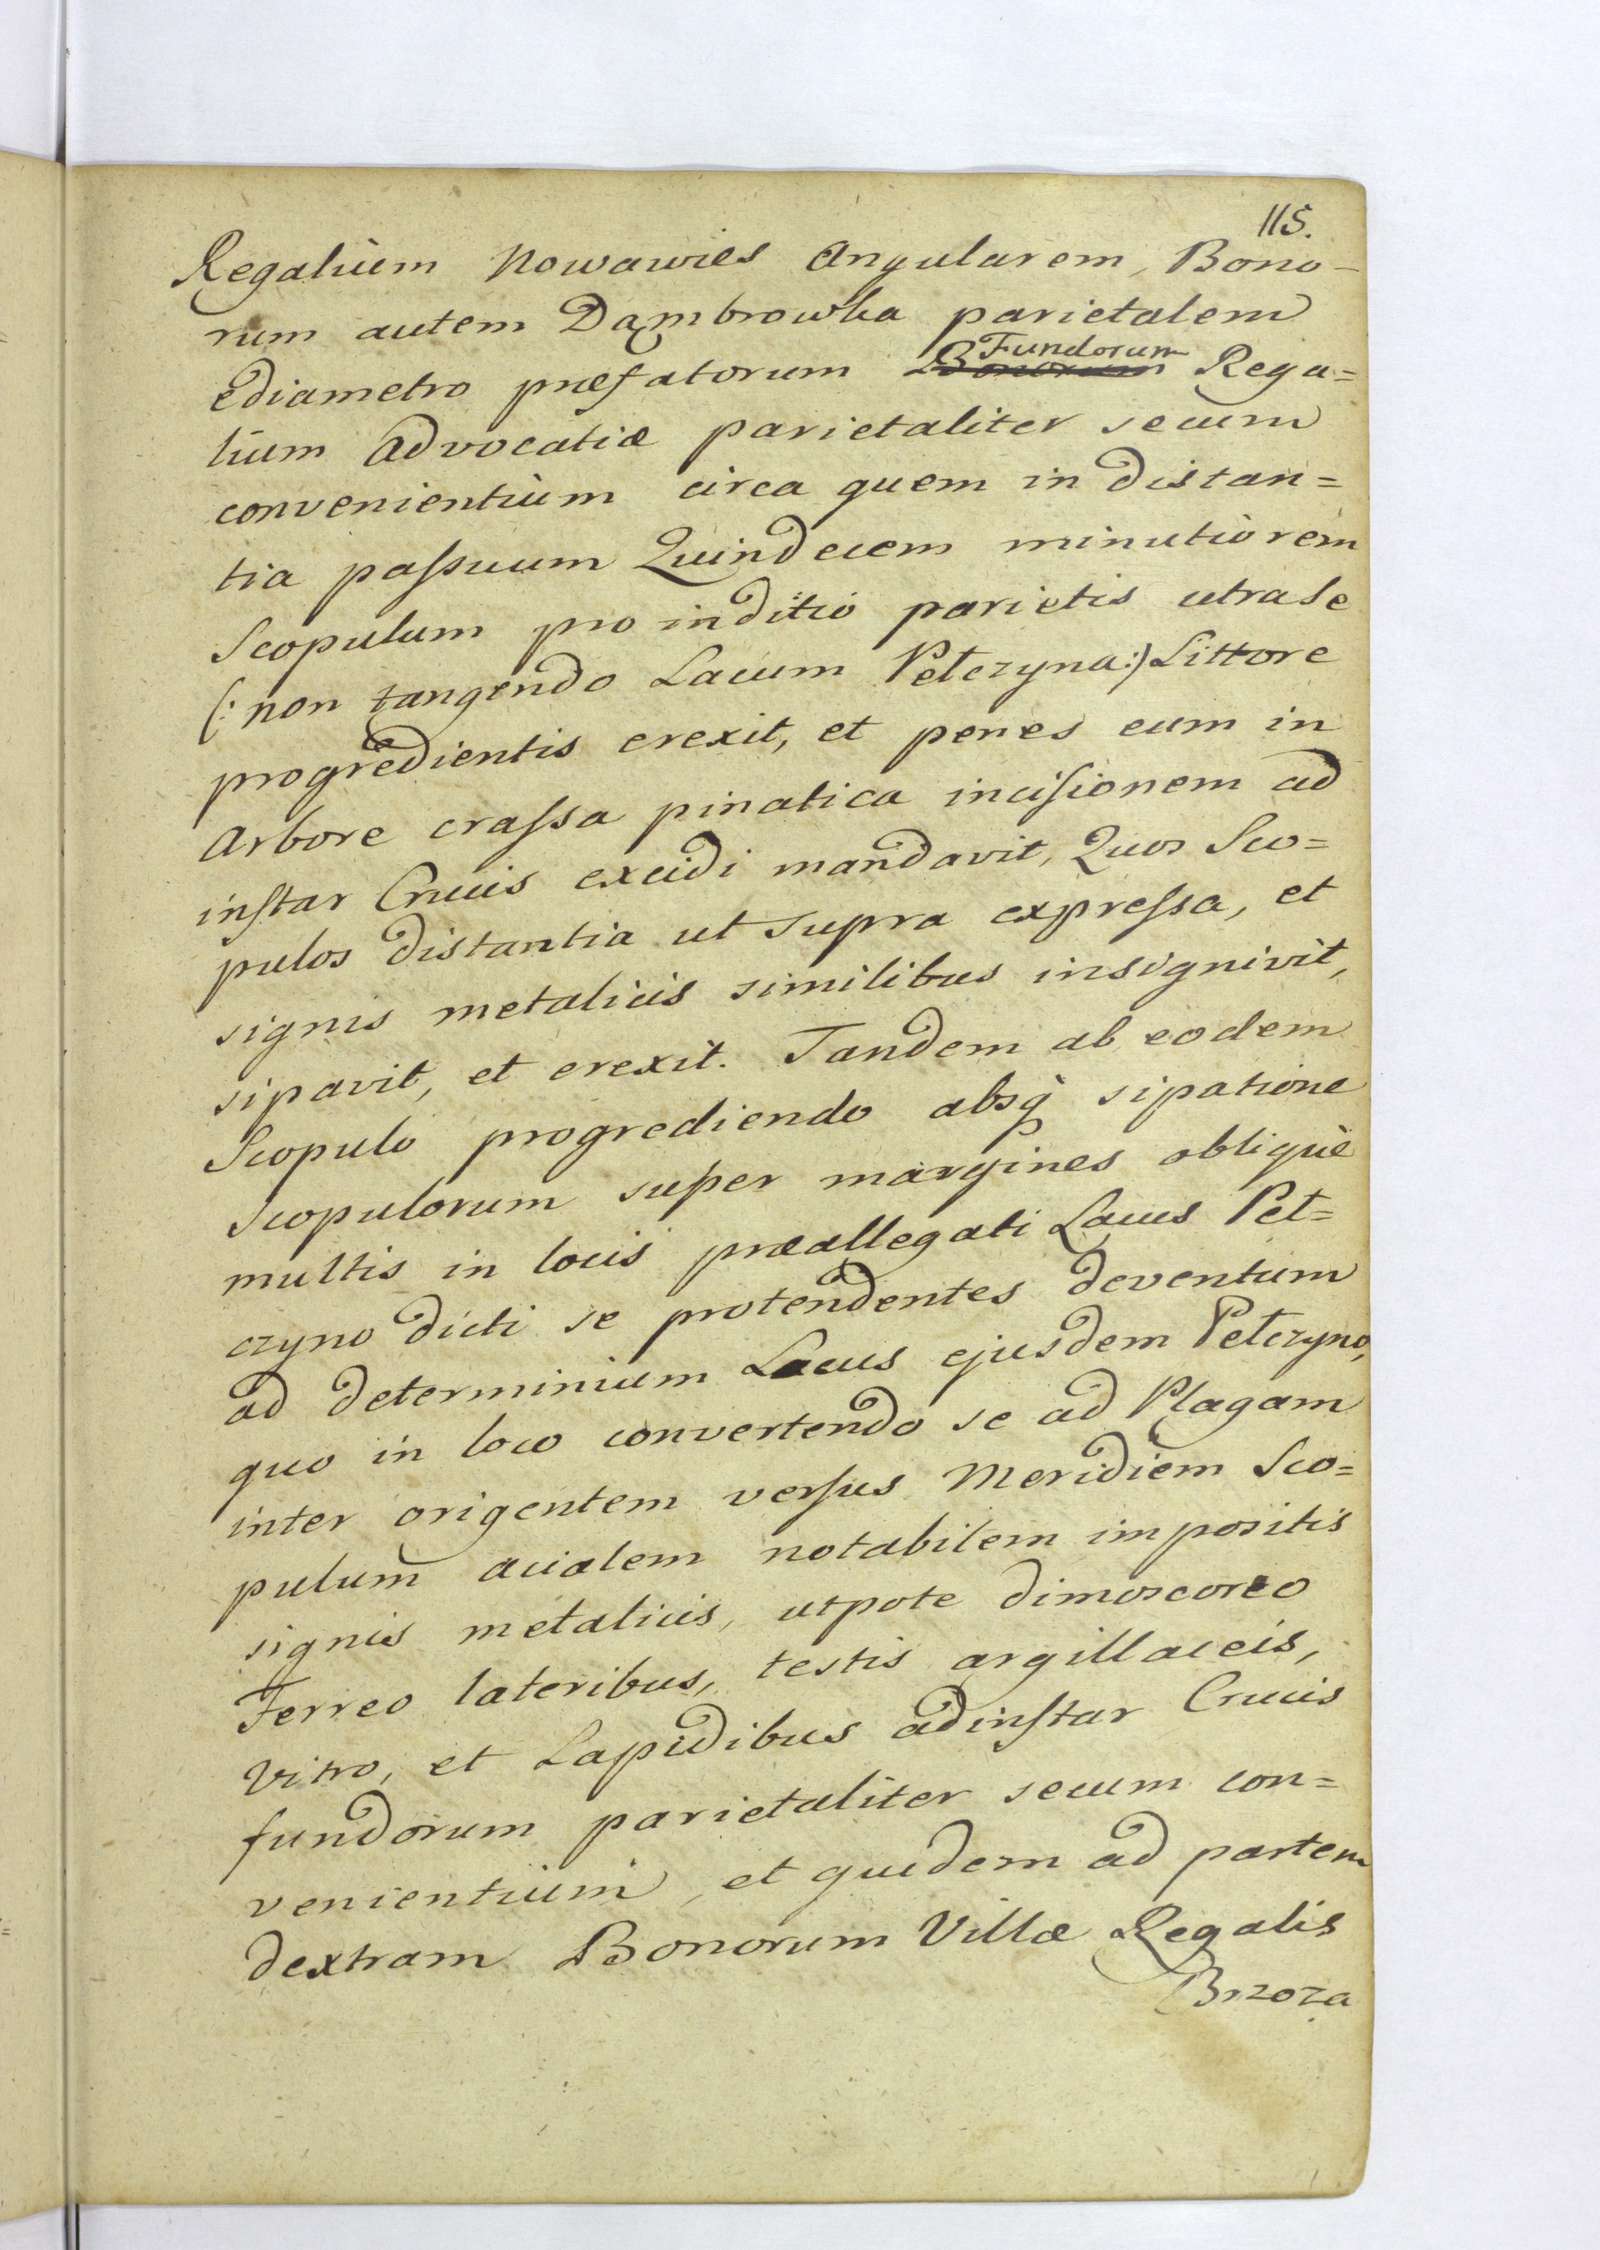 115.
Regalium Nowawies Angularem, Bono-
rum autem Dąmbrowka parietalem
ediametro præfatorum ~~Bonorum~~ Fundorum Rega=
lium Advocatiæ parietaliter secum
convenientium circa quem in distan=
tia passuum Quindecem minutiorem
Scopulum pro inditio parietis utrase
(: non tangendo Lacum Petczyna:) Littore
progredientis erexit, et penes eum in
Arbore crassa pinatica incisionem ad
instar Crucis excidi mandavit, Quos Sco=
pulos distantia ut supra expressa, et
signis metalicis similibus insignivit,
sipavit, et erexit. Tandem ab eodem
Scopulo progrediendo absq̀ sipatione
Scopulorum super margines obliquè
multis in locis præallegati Lacus Pet=
czyno dicti se protendentes deventum
ad determinium Lacus ejusdem Petczyno,
quo in loco convertendo se ad Plagam
inter origentem versus Meridiem Sco=
pulum acialem notabilem impositis
signis metalicis, utpote dimoscoreo
Ferreo lateribus, testis argillaceis,
Vitro, et Lapidibus adinstar Crucis
fundorum parietaliter secum con=
venientium, et quidem ad partem
dextram Bonorum Villæ Regalis
Brzoza